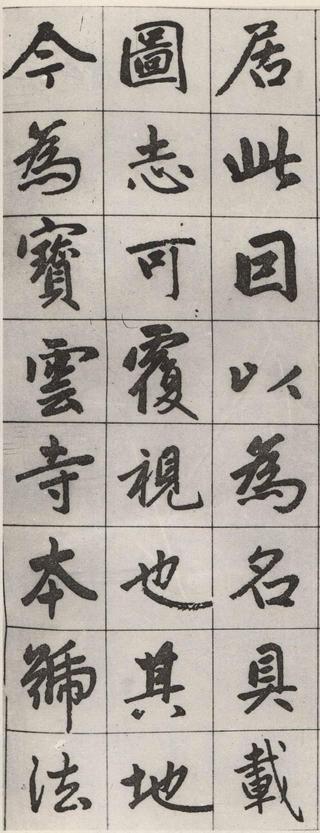 居此回以為名具載
圖志可覆視也其地
今為寶雲寺本號法